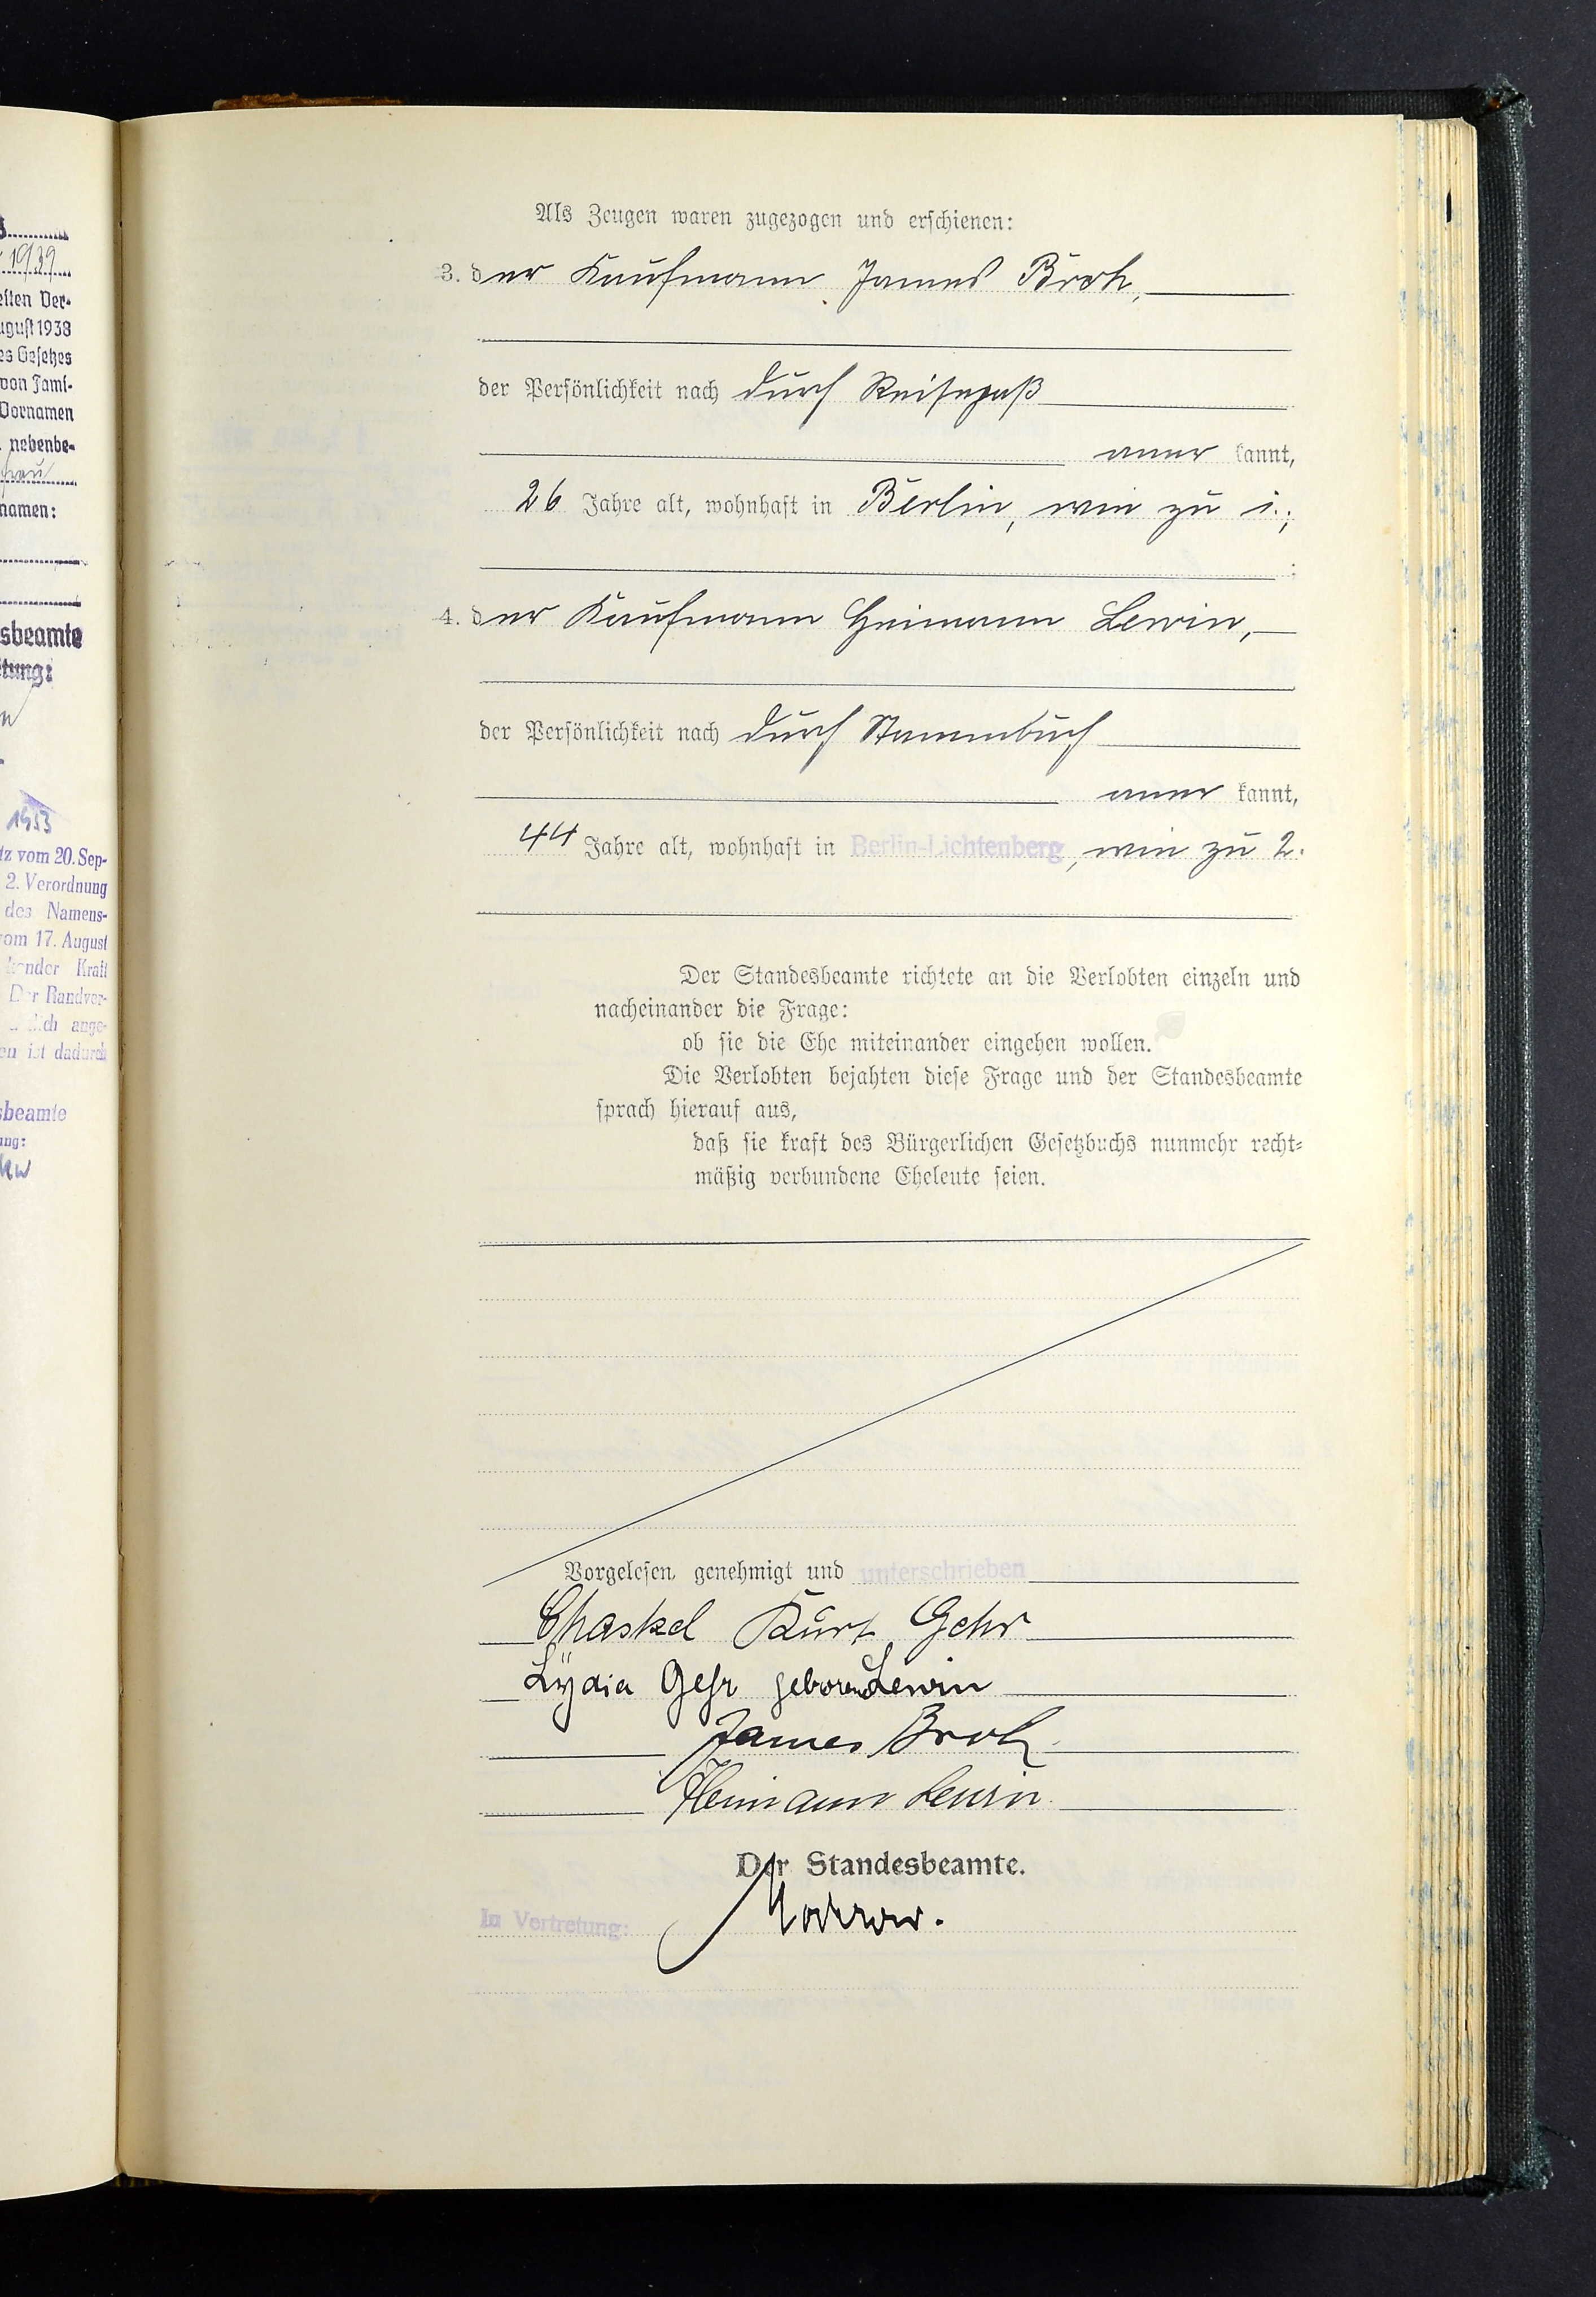 1939
elten Ver-
ugust 1938
es Gesetzes
von Fami-
Vornamen
nebenbe-
frau
namen:
sbeamte
tung:
1953
tz vom 20. Sep-
2. Verordnung
des Namens-
vom 17. August
kender Kraft
Der Randver-
lich ange-
en ist dadurch
sbeamte
ung:
Als Zeugen waren zugezogen und erschienen:
3. der Kaufmann James Broh,
der Persönlichkeit nach durch Reisepaß
aner kannt,
26 Jahre alt, wohnhaft in Berlin, wie zu 1.;
4. der Kaufmann Heimann Lewin,
der Persönlichkeit nach durch Stammbuch
aner kannt,
44 Jahre alt, wohnhaft in Berlin-Lichtenberg, wie zu 2.
Der Standesbeamte richtete an die Verlobten einzeln und
nacheinander die Frage:
ob sie die Ehe miteinander eingehen wollen.
Die Verlobten bejahten diese Frage und der Standesbeamte
sprach hierauf aus,
daß sie kraft des Bürgerlichen Gesetzbuchs nunmehr recht-
mäßig verbundene Eheleute seien.
Vorgelesen, genehmigt und unterschrieben
Chaskel Kurt Gehr
Lydia Gehr geborene Lewin
James Broh
Heimann Lewin
Der Standesbeamte.
In Vertretung: